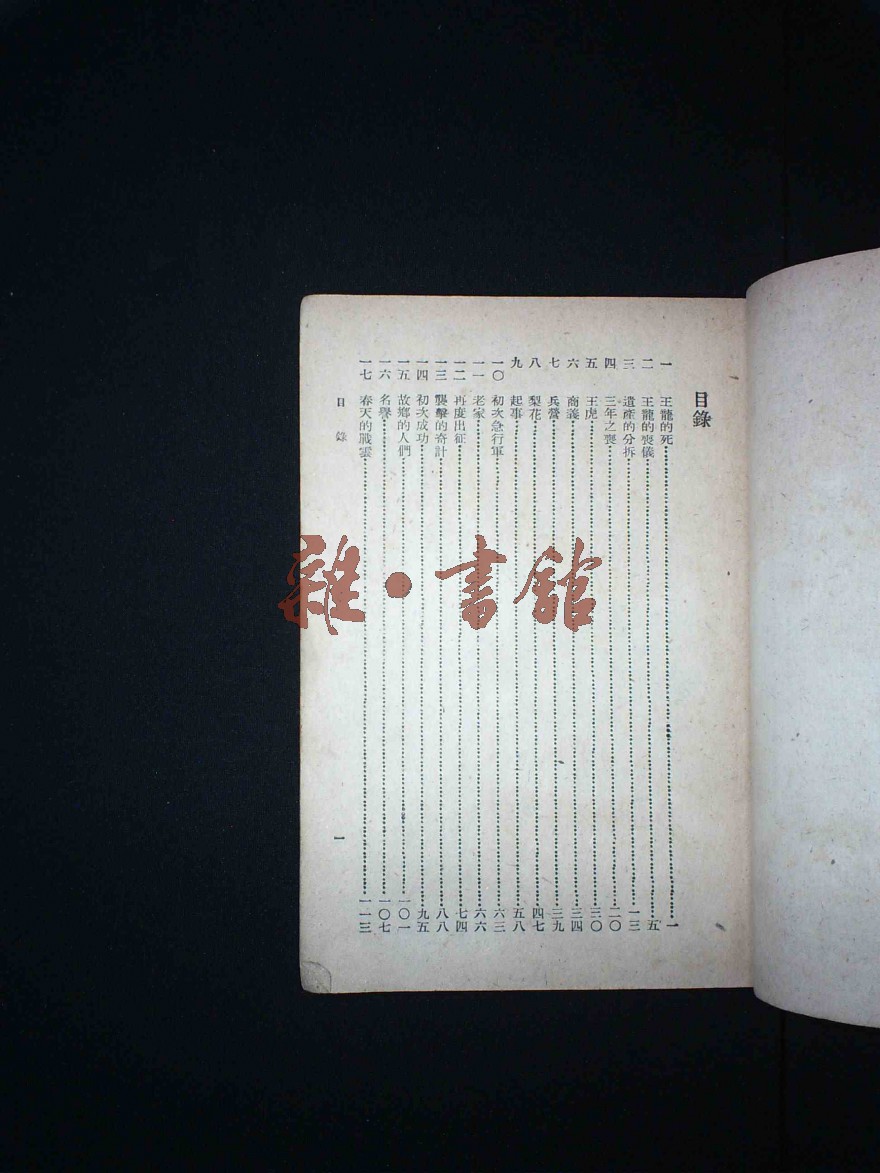 目錄
一 王龍的死 一
二 王龍的喪儀 五
三 遺產的分拆 一三
四 三年之喪 二〇
五 王虎 三〇
六 商議 三四
七 兵營 三九
八 梨花 四七
九 起事 五八
一〇 初次急行軍 六三
一一 老家 六六
一二 再度出征 七四
一三 襲擊的奇計 八八
一四 初次成功 九五
一五 故鄉的人們 一〇一
一六 名譽 一〇七
一七 春天的戰雲 一一三
目錄 一
雜·書館